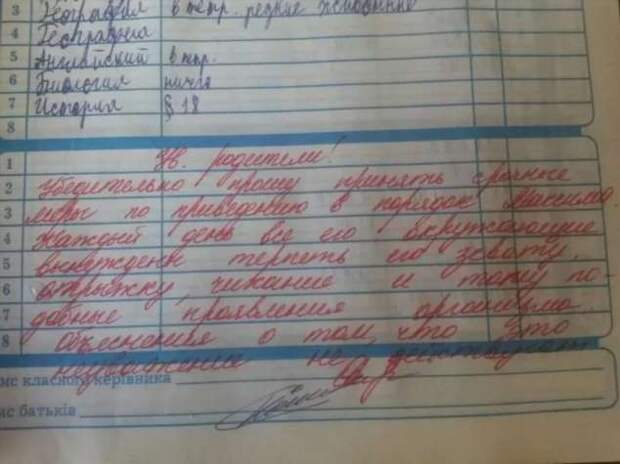 3 География в тетр. редкие животные
4 География
5 Английский в тетр.
6 Биология ничего
7 История § 18
8
1 Ув. родители!
2 Убедительно прошу принять срочные
3 меры по приведению в порядок Максима
4 Каждый день все его окружающие
5 вынуждены терпеть его зевоту,
6 отрыжку, чихание и тому по-
7 добные проявления организма.
8 Объяснения о том, что это
неуважение не действуют
ис класного керівника
ис батьків